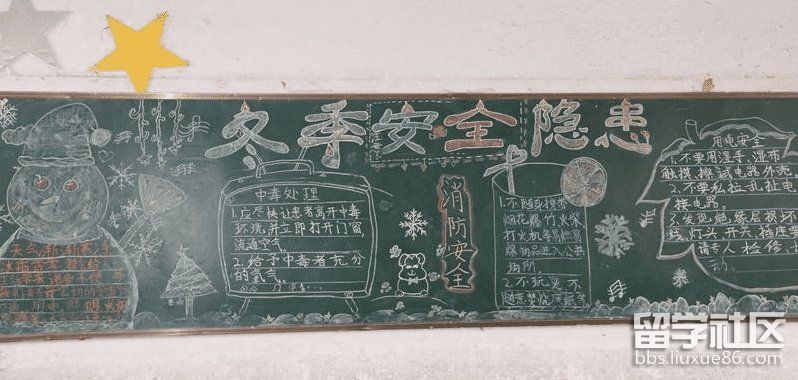 冬季安全隐患
中毒处理
1.应尽快让患者离开中毒
环境,并立即打开门窗
流通空气
2.给予中毒者充分
的氧气
消防安全
1.不随身携带
烟花爆竹火柴
打火机等易燃易
爆物品进入公共
场所
2.不玩火不
随意焚烧废纸等
用电安全
1.不要用湿手,湿布
触摸,擦试电器外壳
2.不要私拉乱扯电
接电器
3.发现绝缘层损坏
线,灯头,开关,插座要
请专人检修
留学社区
bbs.liuxue86.com